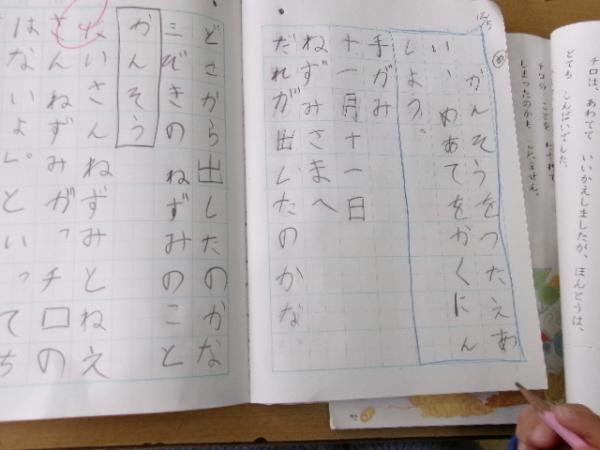 チロは、あわてて いいかえしましたが、ほんとうは、
とても しんぱいでした。
チロの ことを わすれて
しまったのかも しれません。
12/5
め
かんそうをつたえあ
い、めあてをかくにん
しよう。
手がみ
十一月十一日
ねずみさまへ
だれが出したのかな。
どさから出したのかな
三びきのねずみのこと
かんそう
にいさんねずみとねえ
さんねずみが、「チロの
はないよ。」といってち